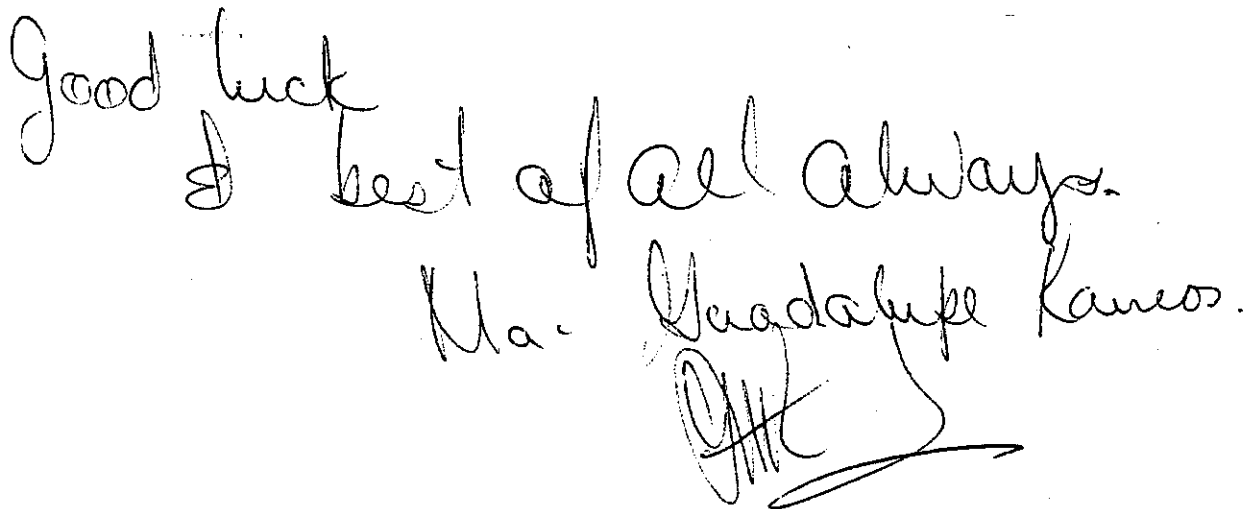 Good luck
& best of all always.
Ma. Guadalupe Ramos.